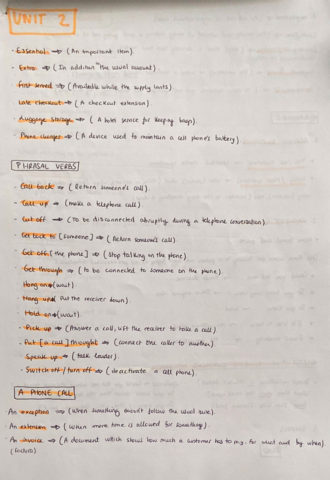 UNIT 2
- Essential → (An important item)
- Extra → (In addition the usual amount)
- First served → (Available while the supply lasts)
Late checkout → (A checkout extension).
- Luggage storage → (A hotel service for keeping bags).
- Phone charger → (A device used to maintain a cell phone's battery)
PHRASAL VERBS
- Call back → (Return someone's call).
- Call up → (make a telephone call).
- Cut off → (To be disconnected abruptly during a telephone conversation).
- Get back to [someone] → (Return someone's call)
- Get off [the phone] → (Stop talking on the phone)
- Get through → (To be connected to someone on the phone).
Hang on → (wait)
- Hang up → Put the receiver down).
- Hold on → (wait).
- Pick up → (Answer a call, lift the receiver to take a call)
- Put [a call] throught → (connect one caller to another).
- Speak up → (talk louder).
- Switch off / turn off → (deactivate a cell phone).
A PHONE CALL
An exception → (When something doesn't follow the usual rule).
An extension → (When more time is allowed for something).
- An invoice → (A document which shows how much a customer has to pay, for what and by when)